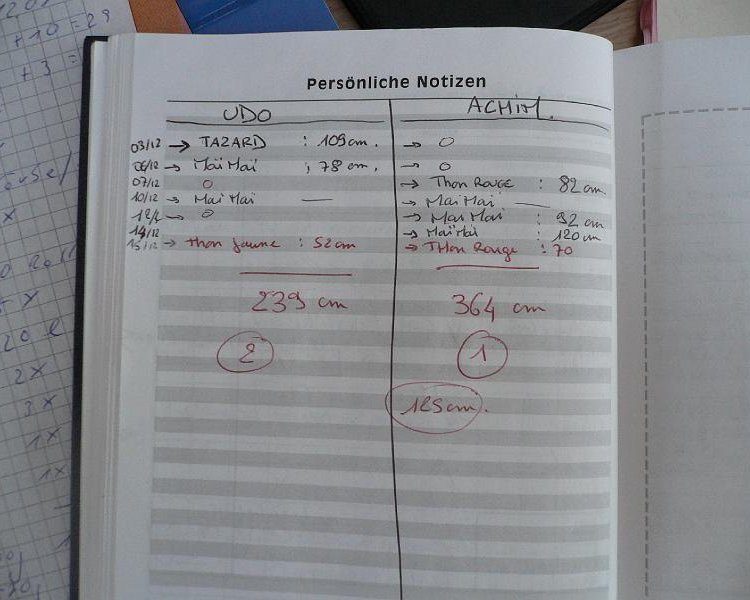 Persönliche Notizen
UDO ACHIM.
03/12 → TAZARD : 109 cm. → O
06/12 → Maï Maï ; 78 cm. → O
07/12 O → Thon Rouge : 82 cm
10/12 → Maï Maï — → Maï Maï —
12/12 → O → Maï Maï : 92 cm
14/12 → Maï Maï : 120 cm
15/12 → Thon jaune : 52 cm → THon Rouge : 70
239 cm 364 cm
2 1
125 cm.
+ 10 = 29
+ 3 =
20 l
2X
3X
1X
1X